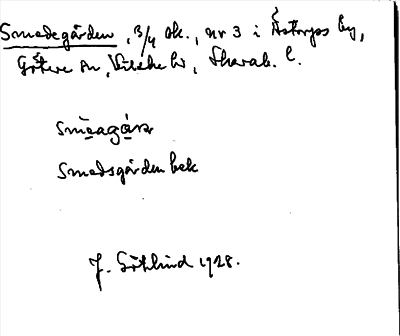 Smedegården, 3/4 ok., nr 3 i Åstorps by,
Götene sn, Kinne hd, Skarab. l.
smeagåʀ
Smedsgården bek
J. Götlind 1928.